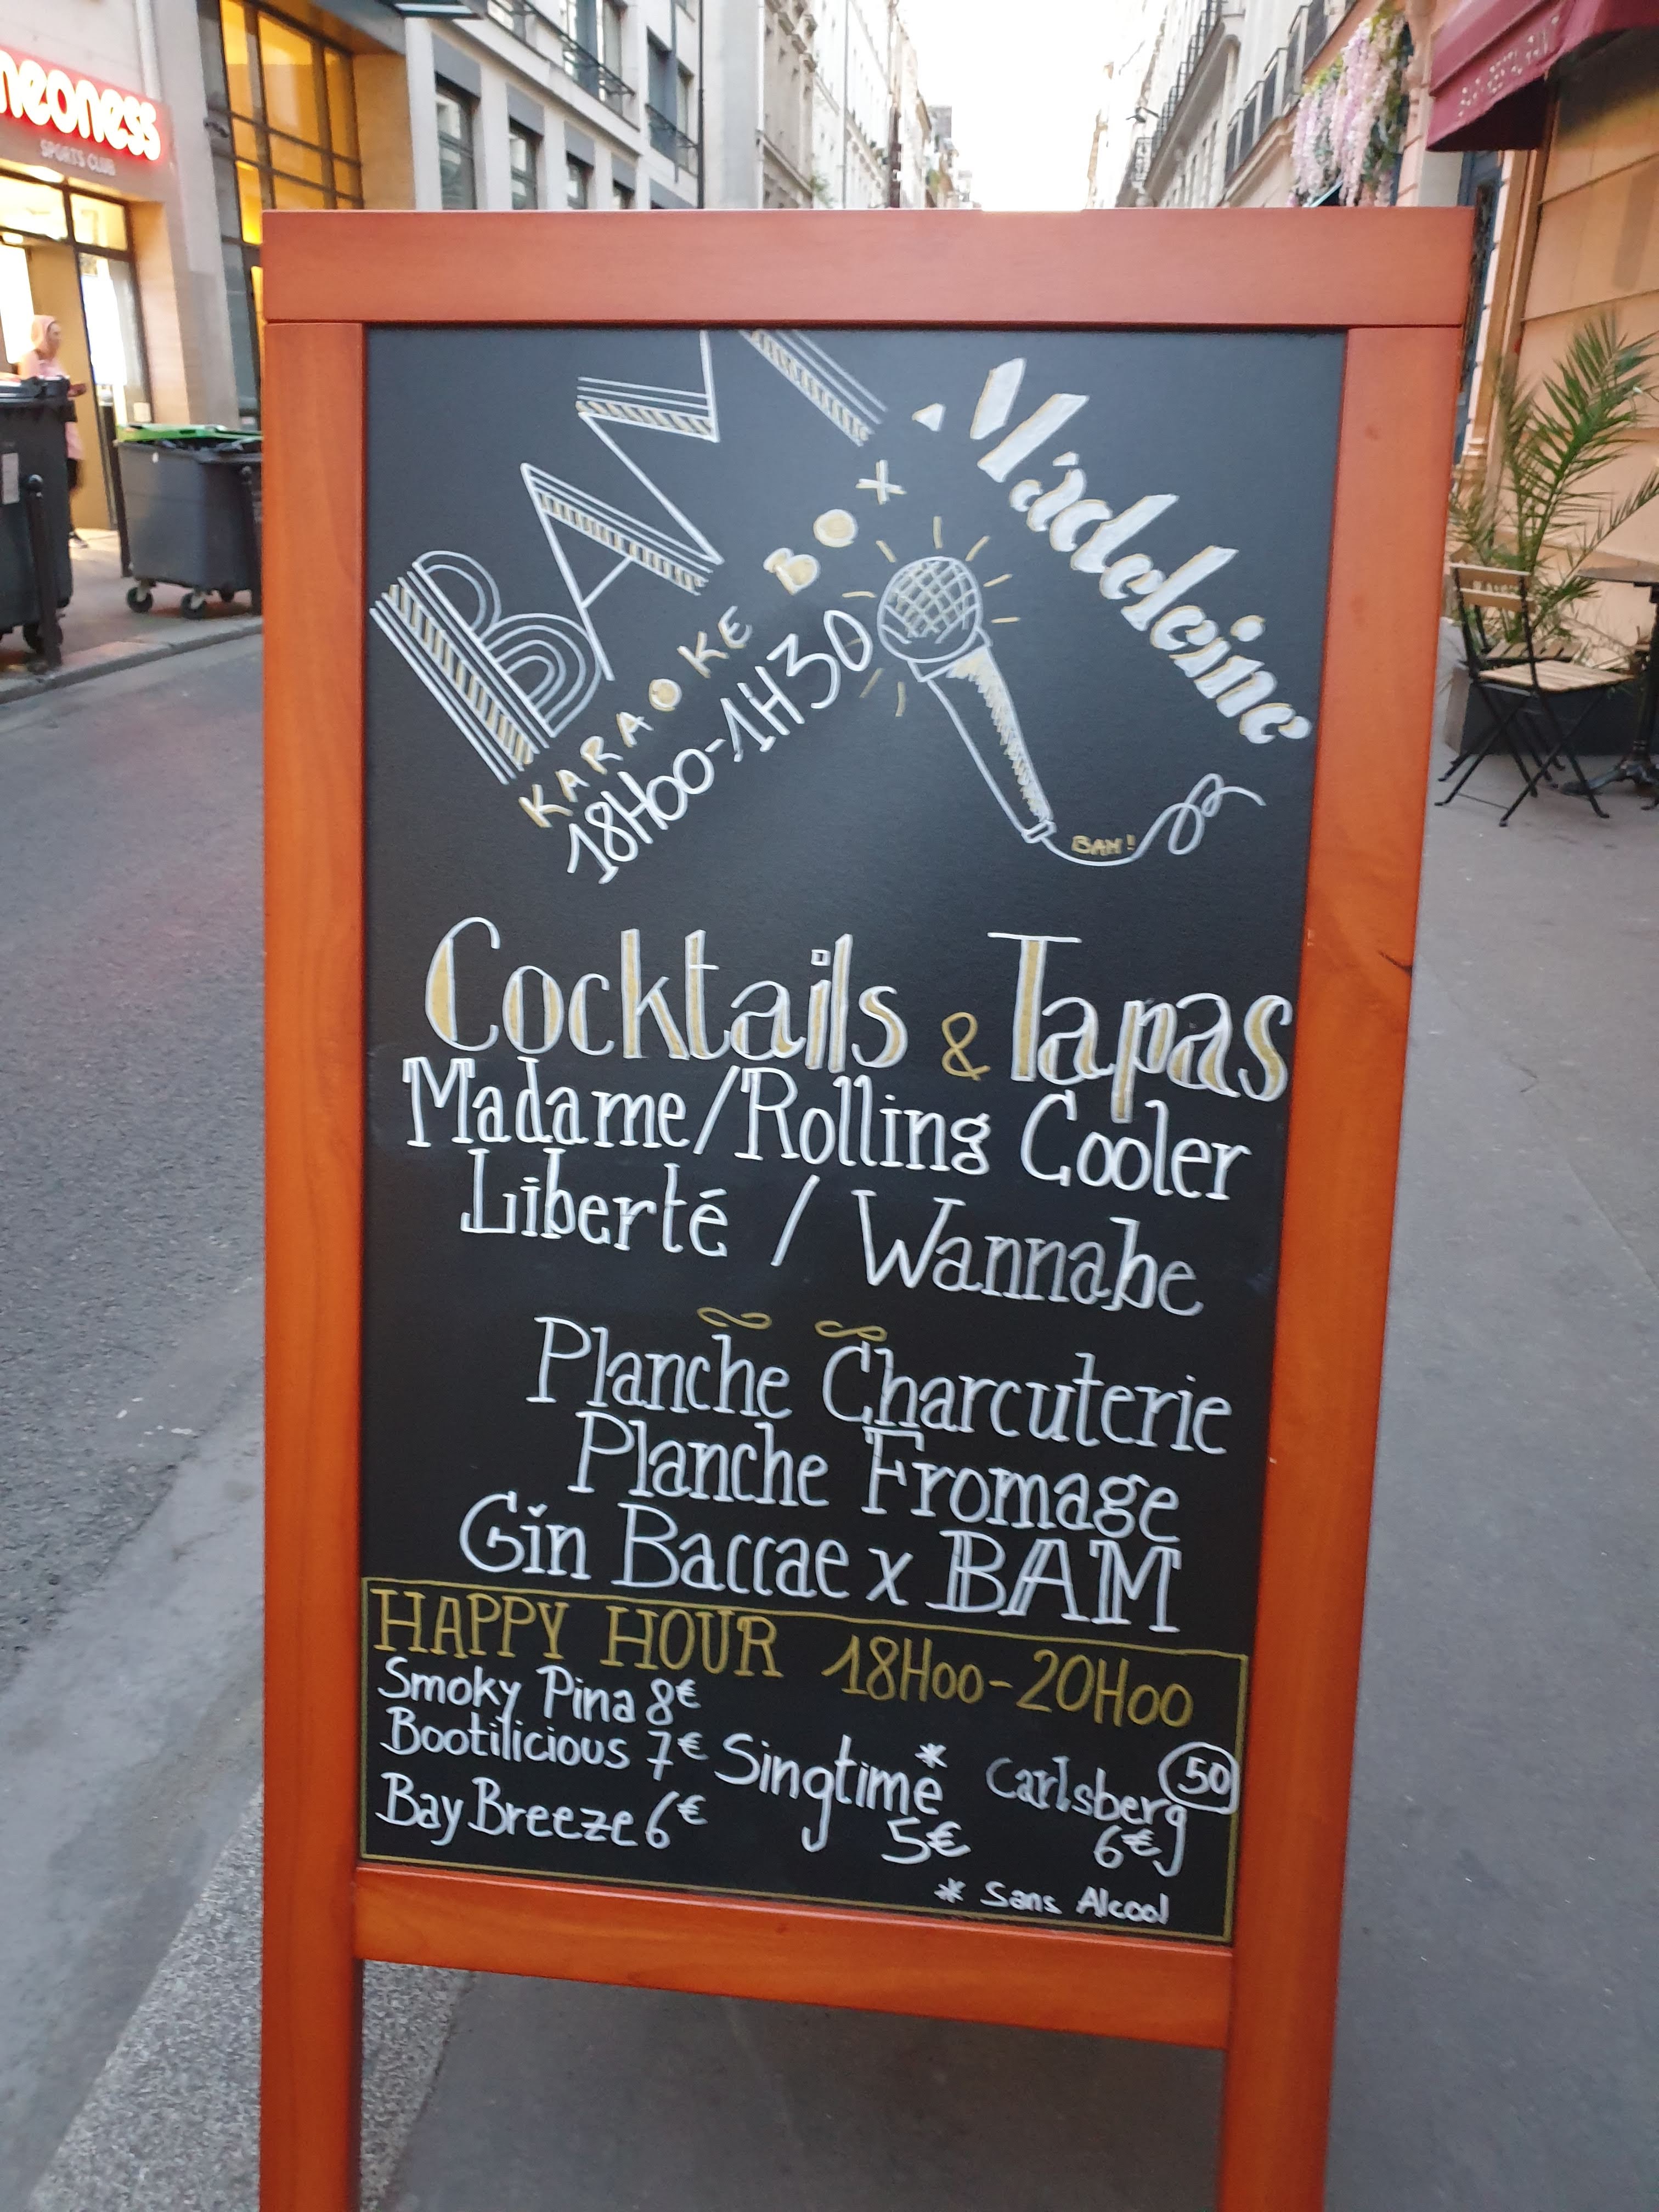 neoness
SPORTS CLUB
BAM
Madeleine
KARAOKE BOX
18H00-1H30
BAM!
Cocktails & Tapas
Madame/Rolling Cooler
Liberté / Wannabe
Planche Charcuterie
Planche Fromage
Gin Baccae x BAM
HAPPY HOUR 18H00-20H00
Smoky Pina 8€
Bootilicious 7€
Bay Breeze 6€
Singtime*
5€
Carlsberg 50
6€
* Sans Alcool